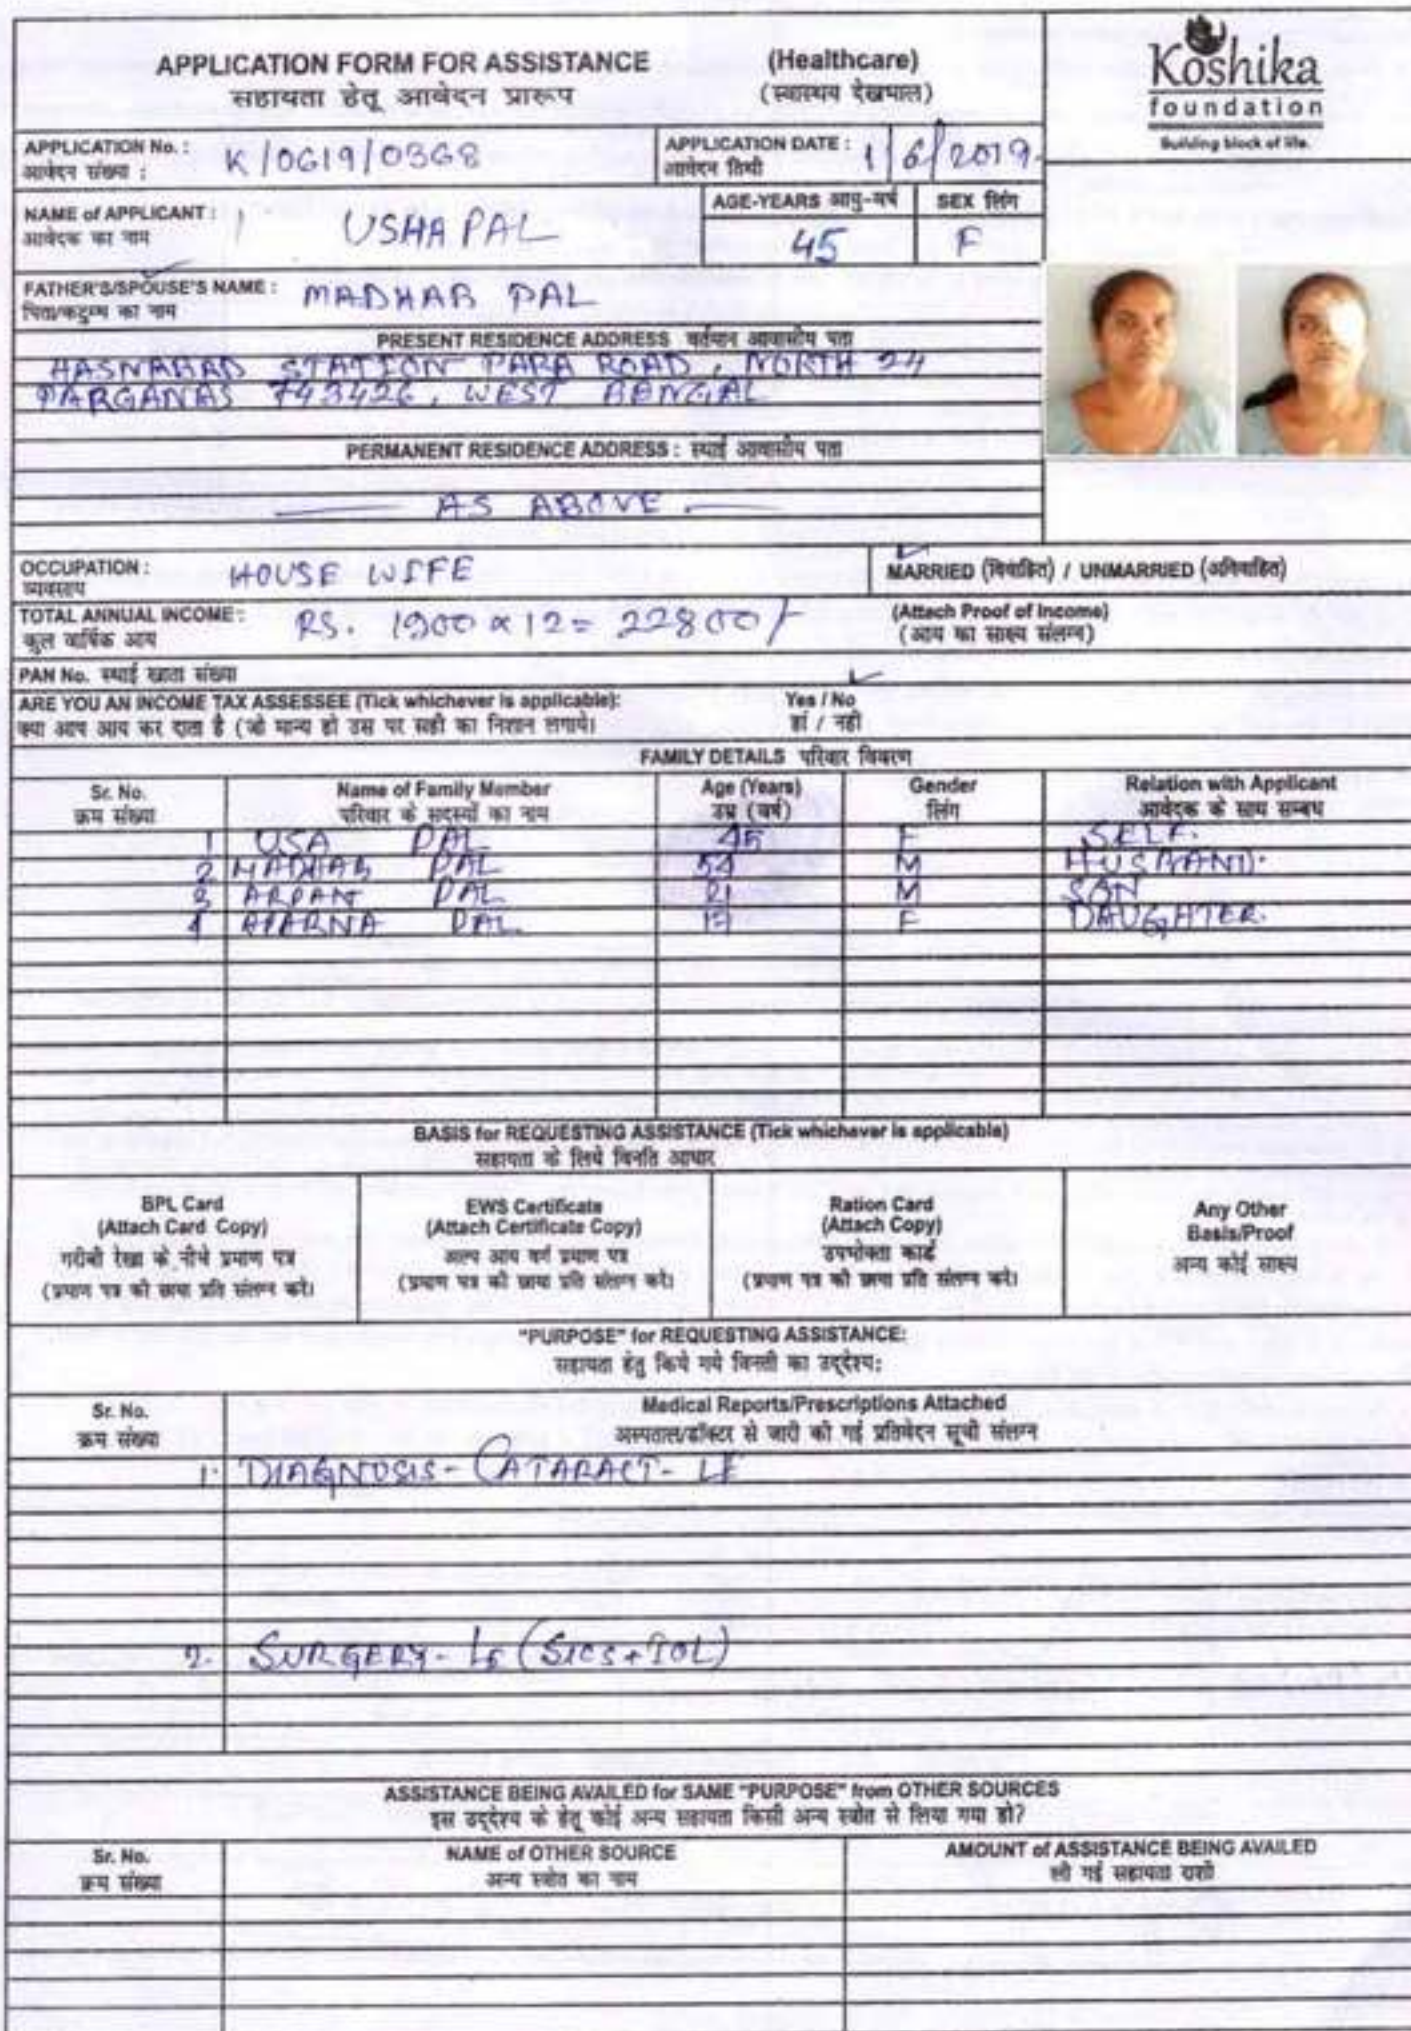 APPLICATION FORM FOR ASSISTANCE (Healthcare)
सहायता हेतू आवेदन प्रारूप (स्वास्थय देखभाल)
Koshika
foundation
Building block of life.
APPLICATION No. : K/0619/0368
आवेदन संख्या :
APPLICATION DATE : 1/6/2019
आवेदन तिथी
NAME of APPLICANT : USHA PAL
आवेदक का नाम
AGE-YEARS आयु-वर्ष 45
SEX लिंग F
FATHER'S/SPOUSE'S NAME : MADHAB PAL
पिता/कटुम्ब का नाम
PRESENT RESIDENCE ADDRESS वर्तमान आवासीय पता
HASNABAD STATION PARA ROAD, NORTH 24
PARGANAS 743426, WEST BENGAL
PERMANENT RESIDENCE ADDRESS : स्थाई आवासीय पता
AS ABOVE
OCCUPATION : HOUSE WIFE
व्यवसाय
MARRIED (विवाहित) / UNMARRIED (अविवाहित)
TOTAL ANNUAL INCOME : RS. 1900 x 12 = 22800/
कुल वार्षिक आय
(Attach Proof of Income)
(आय का साक्ष्य संलग्न)
PAN No. स्थाई खाता संख्या
ARE YOU AN INCOME TAX ASSESSEE (Tick whichever is applicable): Yes / No
क्या आप आय कर दाता है (जो मान्य हो उस पर सही का निशान लगाये। हां / नही
FAMILY DETAILS परिवार विवरण
Sr. No. Name of Family Member Age (Years) Gender Relation with Applicant
क्रम संख्या परिवार के सदस्यों का नाम उम्र (वर्ष) लिंग आवेदक के साथ सम्बध
1 USA PAL 45 F SELF.
2 MADHAB PAL 54 M HUSBAND.
3 ARPAN PAL 21 M SON
4 APARNA PAL 17 F DAUGHTER.
BASIS for REQUESTING ASSISTANCE (Tick whichever is applicable)
सहायता के लिये विनति आधार
BPL Card
(Attach Card Copy)
गरीबी रेखा के नीचे प्रमाण पत्र
(प्रमाण पत्र की छाया प्रति संलग्न करे।
EWS Certificate
(Attach Certificate Copy)
अल्प आय वर्ग प्रमाण पत्र
(प्रमाण पत्र की छाया प्रति संलग्न करे।
Ration Card
(Attach Copy)
उपभोक्ता कार्ड
(प्रमाण पत्र की छाया प्रति संलग्न करे।
Any Other
Basis/Proof
अन्य कोई साक्ष्य
"PURPOSE" for REQUESTING ASSISTANCE:
सहायता हेतु किये गये विनती का उद्देश्य:
Sr. No. Medical Reports/Prescriptions Attached
क्रम संख्या अस्पताल/डॉक्टर से जारी की गई प्रतिवेदन सूची संलग्न
1. DIAGNOSIS - CATARACT - LE
2. SURGERY - LE (SICS + IOL)
ASSISTANCE BEING AVAILED for SAME "PURPOSE" from OTHER SOURCES
इस उद्देश्य के हेतू कोई अन्य सहायता किसी अन्य स्त्रोत से लिया गया हो?
Sr. No. NAME of OTHER SOURCE AMOUNT of ASSISTANCE BEING AVAILED
क्रम संख्या अन्य स्त्रोत का नाम ली गई सहायता राशी